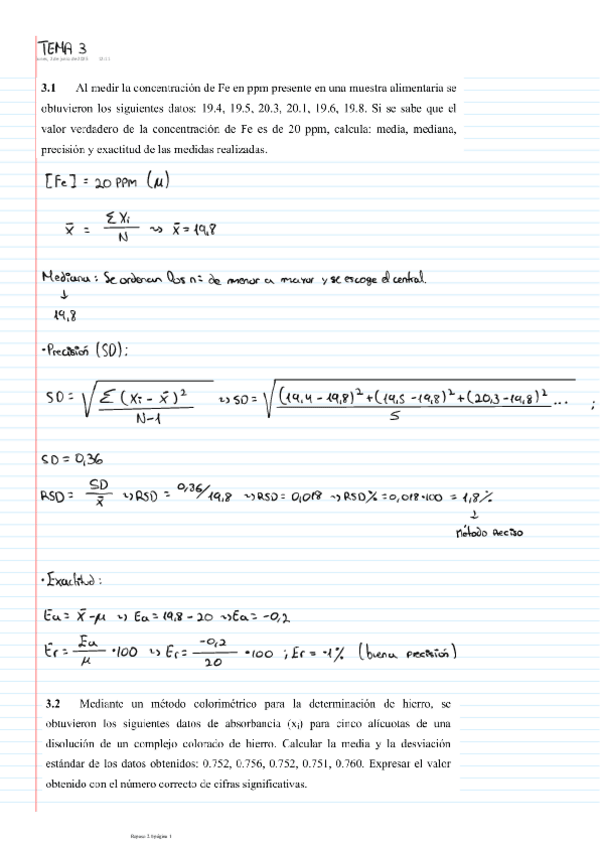 TEMA 3
3.1 Al medir la concentración de Fe en ppm presente en una muestra alimentaria se
obtuvieron los siguientes datos: 19.4, 19.5, 20.3, 20.1, 19.6, 19.8. Si se sabe que el
valor verdadero de la concentración de Fe es de 20 ppm, calcula: media, mediana,
precisión y exactitud de las medidas realizadas.
[Fe] = 20 PPM (μ)
x̄ = Σ Xi / N ⇝ x̄ = 19,8
Mediana: Se ordenan los nº de menor a mayor y se escoge el central.
↓
19,8
· Precisión (SD):
SD = √(Σ (Xi - x̄)² / N-1) ⇝ SD = √((19,4 - 19,8)² + (19,5 - 19,8)² + (20,3 - 19,8)² ... / 5) ;
SD = 0,36
RSD = SD / x̄ ⇝ RSD = 0,36/19,8 ⇝ RSD = 0,018 ⇝ RSD% = 0,018·100 = 1,8%
↓
método preciso
· Exactitud:
Ea = x̄ - μ ⇝ Ea = 19,8 - 20 ⇝ Ea = -0,2
Er = Ea / μ · 100 ⇝ Er = -0,2 / 20 · 100 ; Er = -1% (buena precisión)
3.2 Mediante un método colorimétrico para la determinación de hierro, se
obtuvieron los siguientes datos de absorbancia (xi) para cinco alícuotas de una
disolución de un complejo colorado de hierro. Calcular la media y la desviación
estándar de los datos obtenidos: 0.752, 0.756, 0.752, 0.751, 0.760. Expresar el valor
obtenido con el número correcto de cifras significativas.